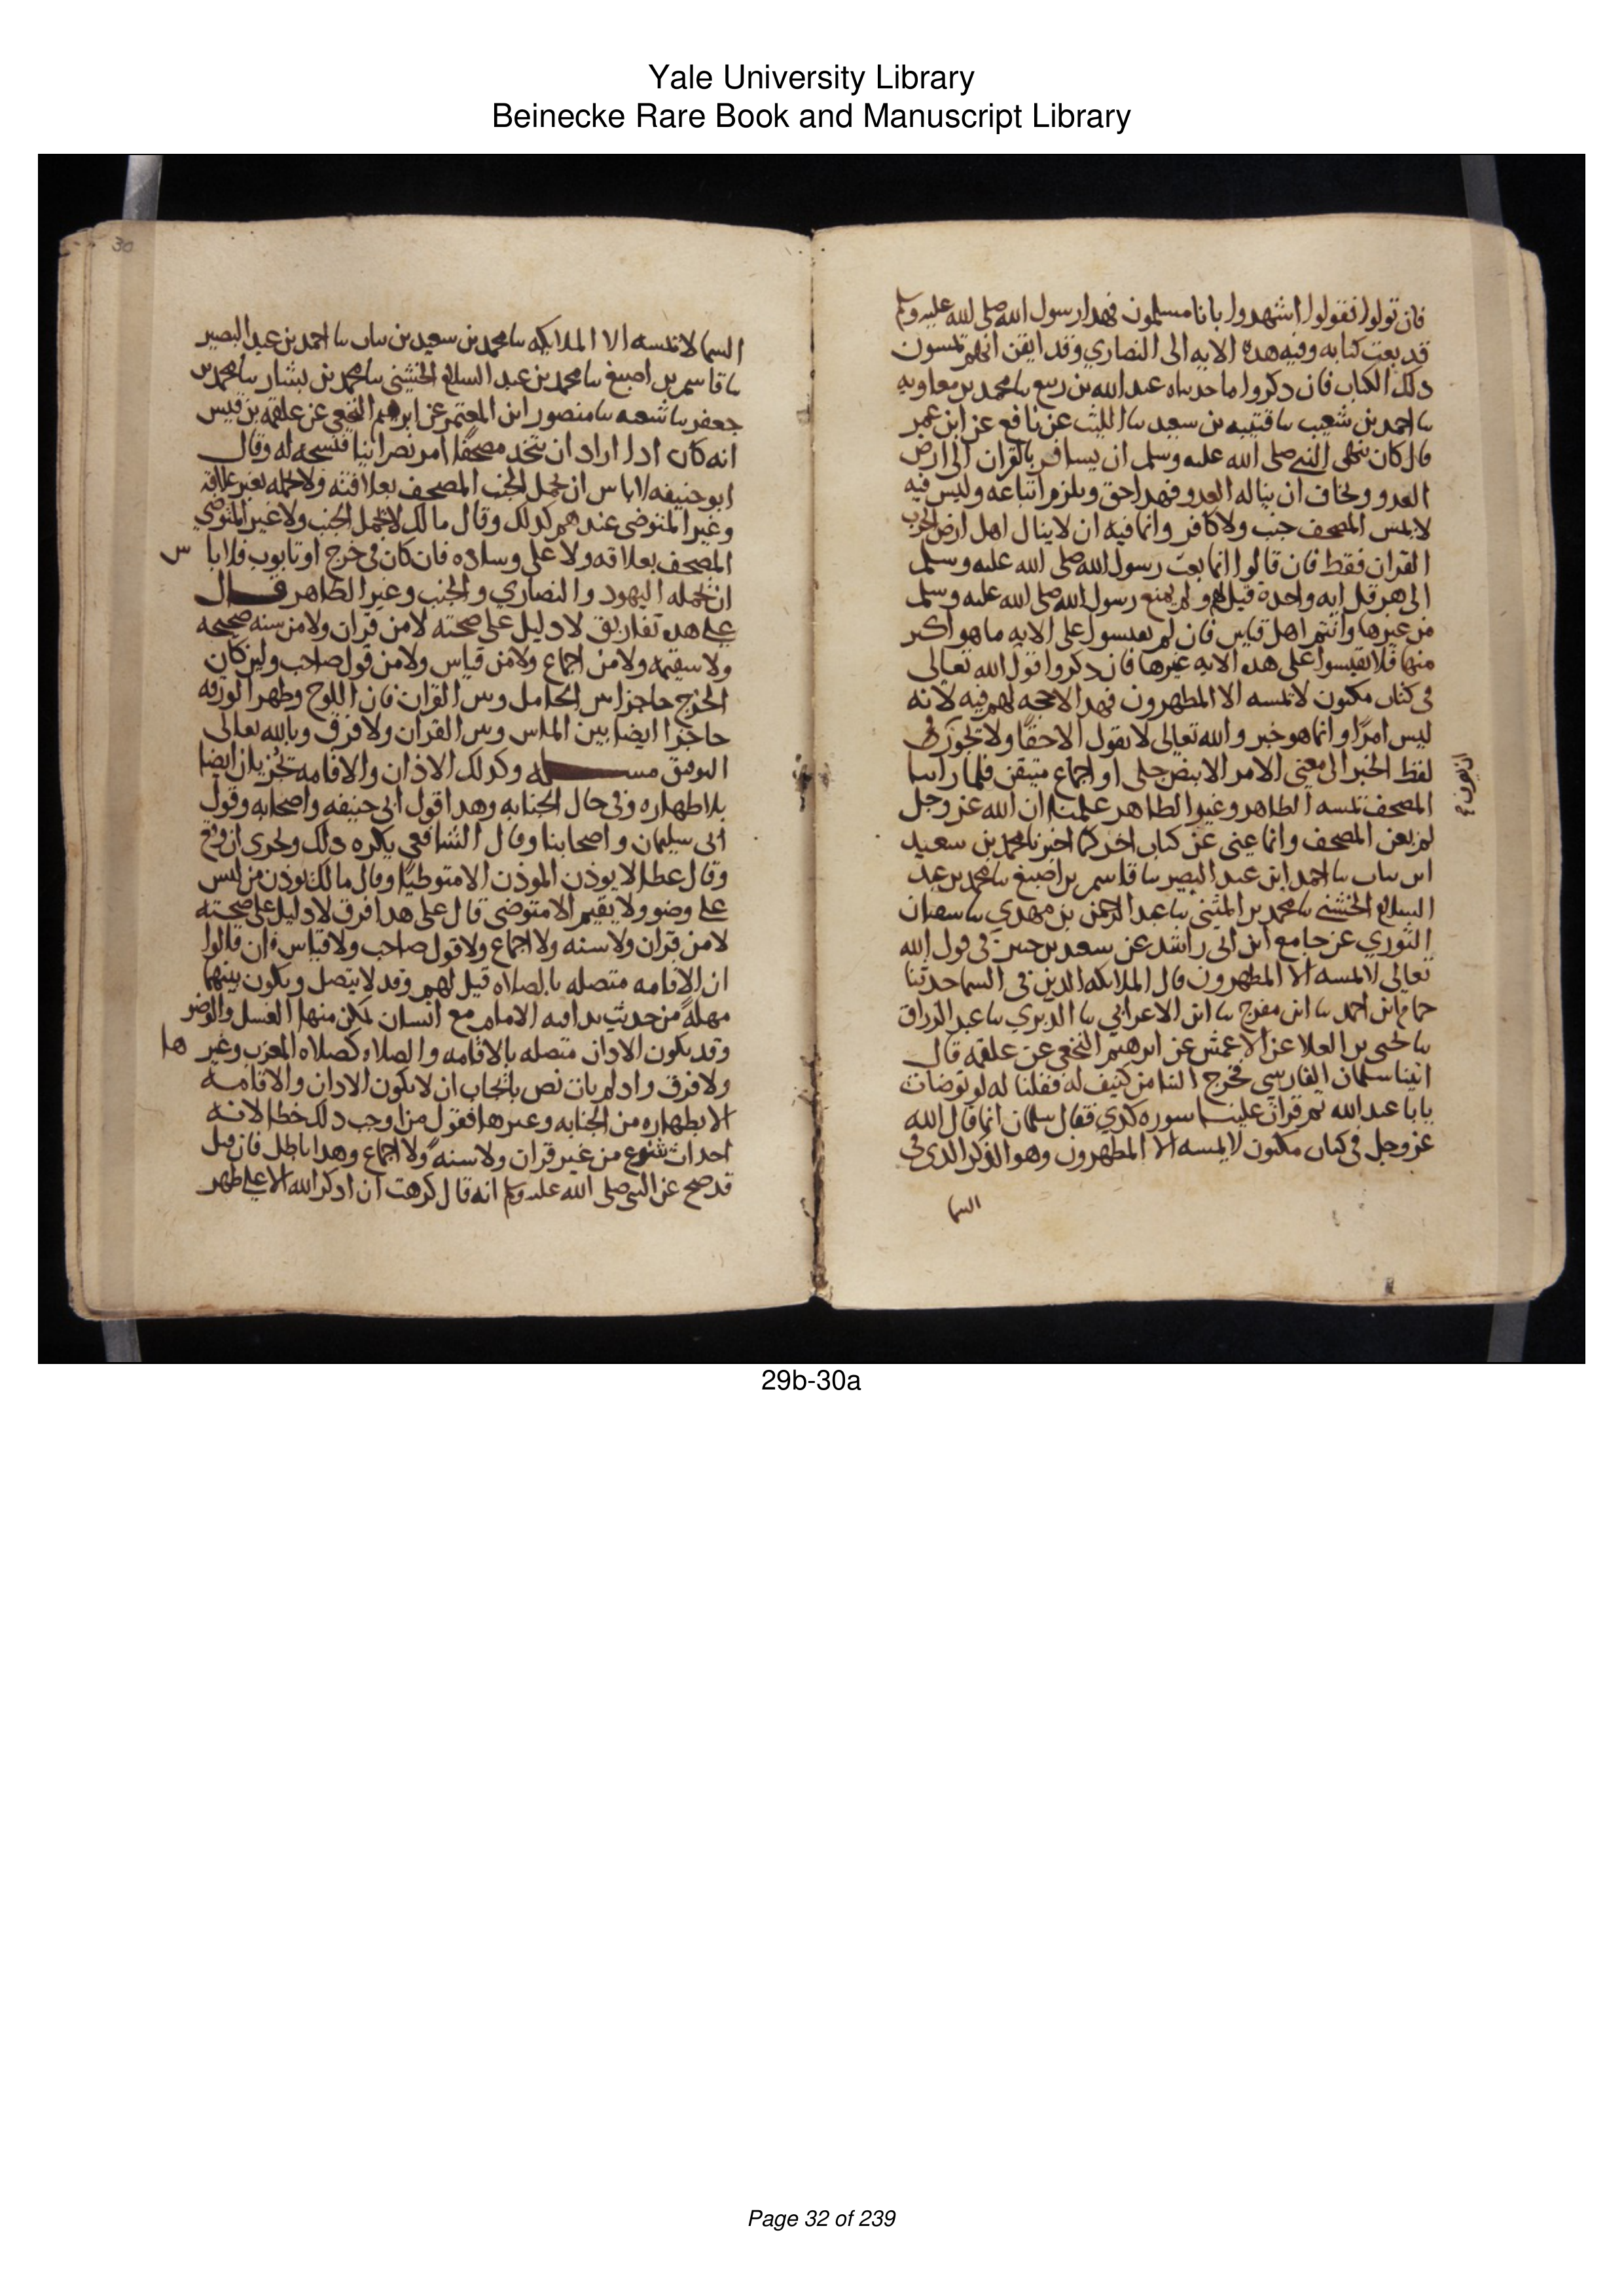 Yale University Library
Beinecke Rare Book and Manuscript Library
فان تولوا فقولوا اشهدوا بانا مسلمون فهدا رسول الله صلى الله عليه وسلم
قد بعث كتابه وفيه هده الايه الى النصاري وقد ايقن انهم يمسون
دلك الكتاب فان دكروا ما حدثناه عبد الله بن ربيع نا محمد بن معاويه
نا احمد بن شعيب نا قتيبه بن سعيد نا الليث عن نافع عن ابن عمر
قال كان ينهى النبي صلى الله عليه وسلم ان يسافر بالقران الى ارض
العدو ويخاف ان يناله العدو فهدا حق ويلزم اتباعه وليس فيه
لا يمس المصحف جنب ولا كافر وانما فيه ان لا ينال اهل ارض الحرب
القران فقط فان قالوا انما بعث رسول الله صلى الله عليه وسلم
الى هرقل ايه واحده قيل لهم ولم يمنع رسول الله صلى الله عليه وسلم
من غيرها وانتم اهل قياس فان لم تقيسوا على الايه ما هو اكثر
منها فلا تقيسوا على هده الايه غيرها فان دكروا قول الله تعالى
في كتاب مكنون لا يمسه الا المطهرون فهدا لا حجه لهم فيه لانه
ليس امرا وانما هو خبر والله تعالى لا يقول الا حقا ولا يجوز
لفظ الخبر الى معنى الامر الا بنص جلى او اجماع متيقن فلما راينا
المصحف يمسه الطاهر وغير الطاهر علمنا ان الله عز وجل
لم يعن المصحف وانما عنى عن كتاب اخر كما اخبرنا محمد بن سعيد
ابن نبات نا احمد ابن عبد البصير نا قاسم بن اصبغ نا محمد بن عبد
السلام الخشني نا محمد بن المثنى نا عبد الرحمن بن مهدي نا سفيان
الثوري عن جامع ابن ابى راشد عن سعيد بن جبير في قول الله
تعالى لا يمسه الا المطهرون قال الملايكه الدين في السما حدثنا
حمام ابن احمد نا ابن مفرج نا ابن الاعرابي نا الدبري نا عبد الرزاق
نا يحيى بن العلا عن الاعمش عن ابرهيم النخعي عن علقمه قال
اتينا سلمان الفارسي فخرج الينا من كنيف له فقلنا له لو توضات
يابا عبد الله ثم قرات علينا سوره كدي فقال سلمان انما قال الله
عز وجل في كتاب مكنون لا يمسه الا المطهرون وهو الدكر الدي في
السما
30
السما لا يمسه الا الملايكه نا محمد بن سعيد بن نبات نا احمد بن عبد البصير
نا قاسم بن اصبغ نا محمد بن عبد السلام الخشني نا محمد بن بشار نا محمد بن
جعفر نا شعبه نا منصور ابن المعتمر عن ابرهيم النخعي عن علقمه بن قيس
انه كان ادا اراد ان يتخد مصحفا امر نصرانيا فنسخه له وقال
ابو حنيفه لا باس ان يحمل الجنب المصحف بعلاقته ولا يحمله بغير علاقه
وغير المتوضى عندهم كدلك وقال مالك لا يحمل الجنب ولا غير المتوضي
المصحف بعلاقه ولا على وساده فان كان في خرج او تابوت فلا باس
ان يحمله اليهود والنصاري والجنب وغير الطاهر قال
على هده تفاريق لا دليل على صحته لا من قران ولا من سنه صحيحه
ولا سقيمه ولا من اجماع ولا من قياس ولا من قول صاحب ولين كان
الخرج حاجزا بين الحامل وبين القران فان اللوح وظهر الورقه
حاجزا ايضا بين الماس وبين القران ولا فرق وبالله تعالى
التوفيق مسله وكدلك الاذان والاقامه تجزيان ايضا
بلا طهاره وفي حال الجنابه وهدا قول ابى حنيفه واصحابه وقول
ابى سليمان واصحابنا وقال الشافعي يكره دلك ويجزى ان وقع
وقال عطا لا يودن المودن الا متوطيا وقال مالك يودن من ليس
على وضو ولا يقيم الا متوضى قال على هدا فرق لا دليل على صحته
لا من قران ولا سنه ولا اجماع ولا قول صاحب ولا قياس فان قالوا
ان الاقامه متصله بالصلاه قيل لهم وقد لا يتصل ويكون بينهما
مهله من حديث بدا فيه الامام مع انسان يمكن منها الغسل والوضو
وقد يكون الادان متصله بالاقامه والصلاه كصلاه المغرب وغيرها
ولا فرق وادا لم يات نص بايجاب ان لا يكون الادان والاقامه
الا بطهاره من الجنابه وغيرها فقول من اوجب دلك خطا لانه
احداث شرع من غير قران ولا سنه ولا اجماع وهدا باطل فان قيل
قد صح عن النبي صلى الله عليه وسلم انه قال كرهت ان ادكر الله الا على طهر
29b-30a
Page 32 of 239